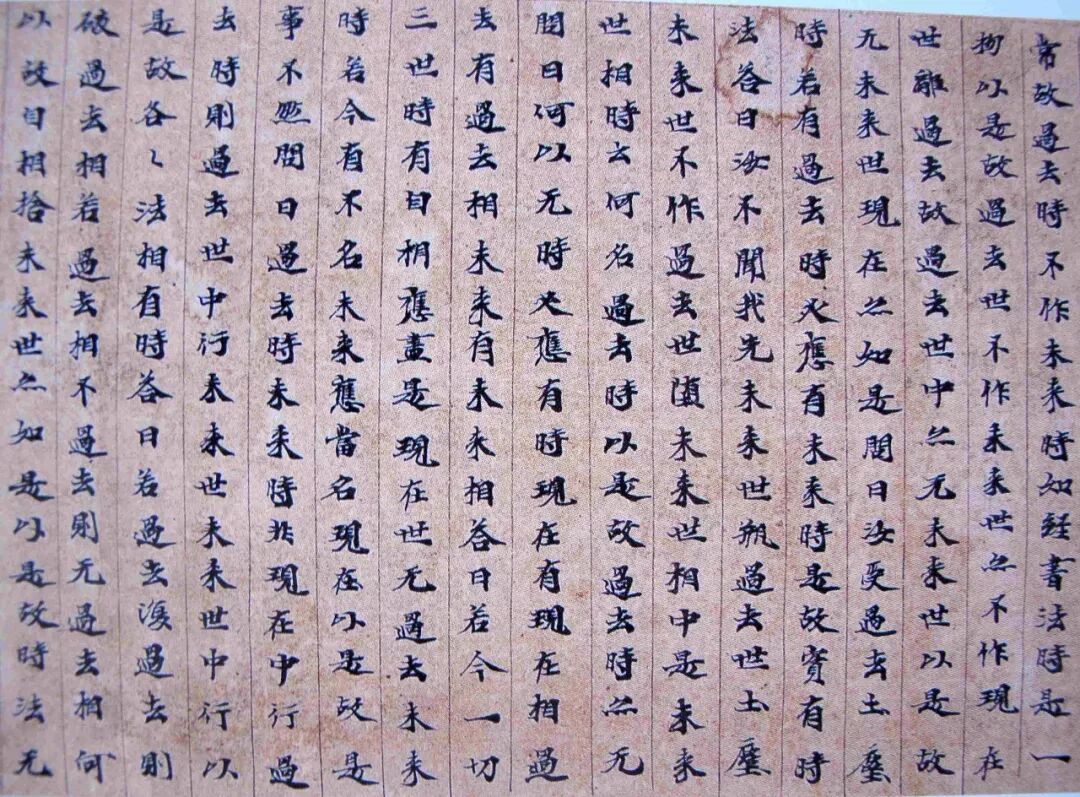 常故過去時不作未来時如経書法時是一
物以是故過去世不作未来世亦不作現在
世離過去故過去世中亦无未来世以是故
无未来世現在亦如是問曰汝受過去土塵
時若有過去時必應有未来時是故實有時
法荅曰汝不聞我先未来世瓶過去世土塵
未来世不作過去世墮未来世相中是未来
世相時云何名過去時以是故過去時亦无
問曰何以无時必應有時現在有現在相過
去有過去相未来有未来相荅曰若今一切
三世時有自相應盡是現在世无過去未来
時若今有不名未来應當名現在以是故是
事不然問曰過去時未来時非現在中行過
去時則過去世中行未来世未来世中行以
是故各〻法相有時荅曰若過去復過去則
破過去相若過去相不過去則无過去相何
以故自相捨未来世亦如是以是故時法无